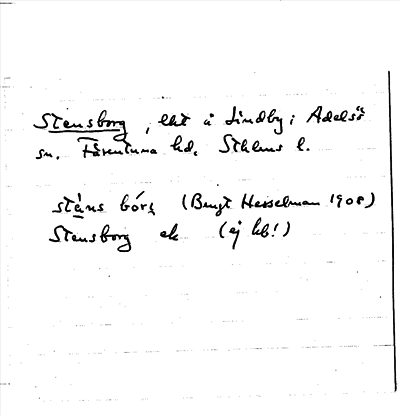 Stensborg, lht å Lindby i Adelsö
sn. Färentuna hd. Sthlms l.
stä̀ns bórj (Bengt Hesselman 1908)
Stensborg ek (ej kb!)